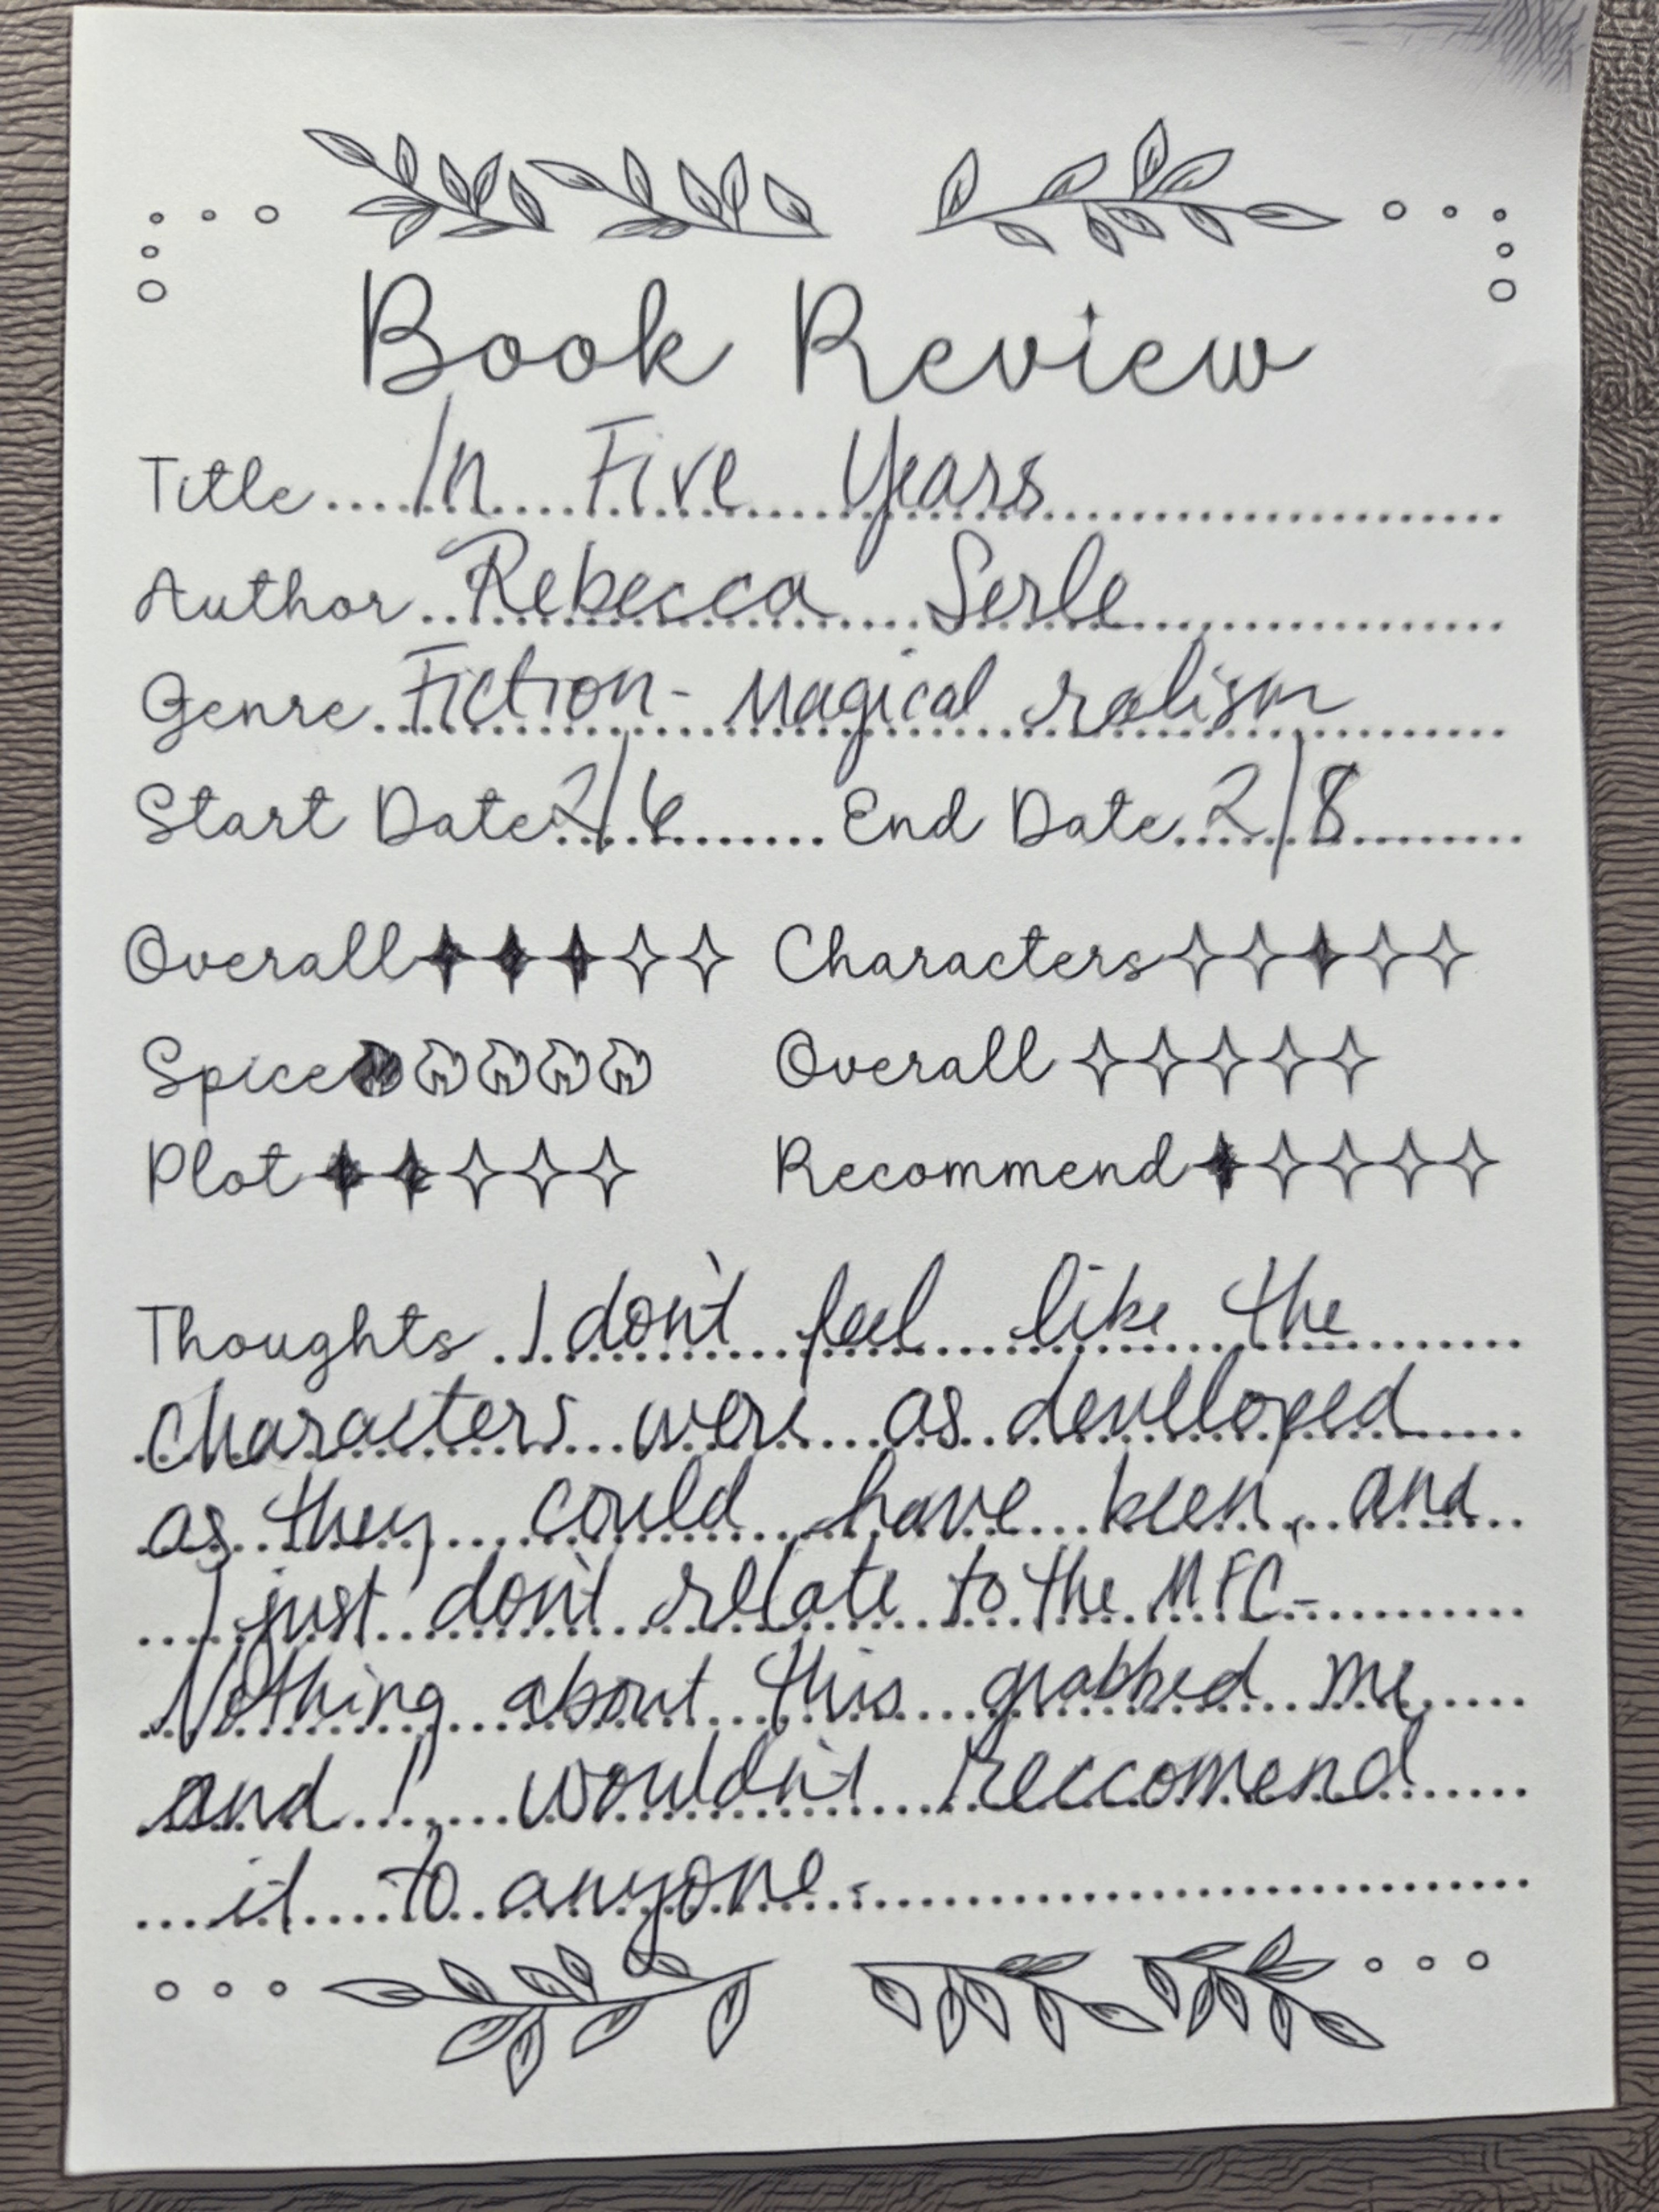 Book Review
Title In Five Years
Author Rebecca Serle
Genre Fiction - Magical ralism
Start Date 2/6 End Date 2/8
Overall Characters
Spice Overall
Plot Recommend
Thoughts I don't feel like the
characters were as developed
as they could have been, and
I just don't relate to the MFC-
Nothing about this grabbed me
and I wouldn't reccomend
it to anyone.